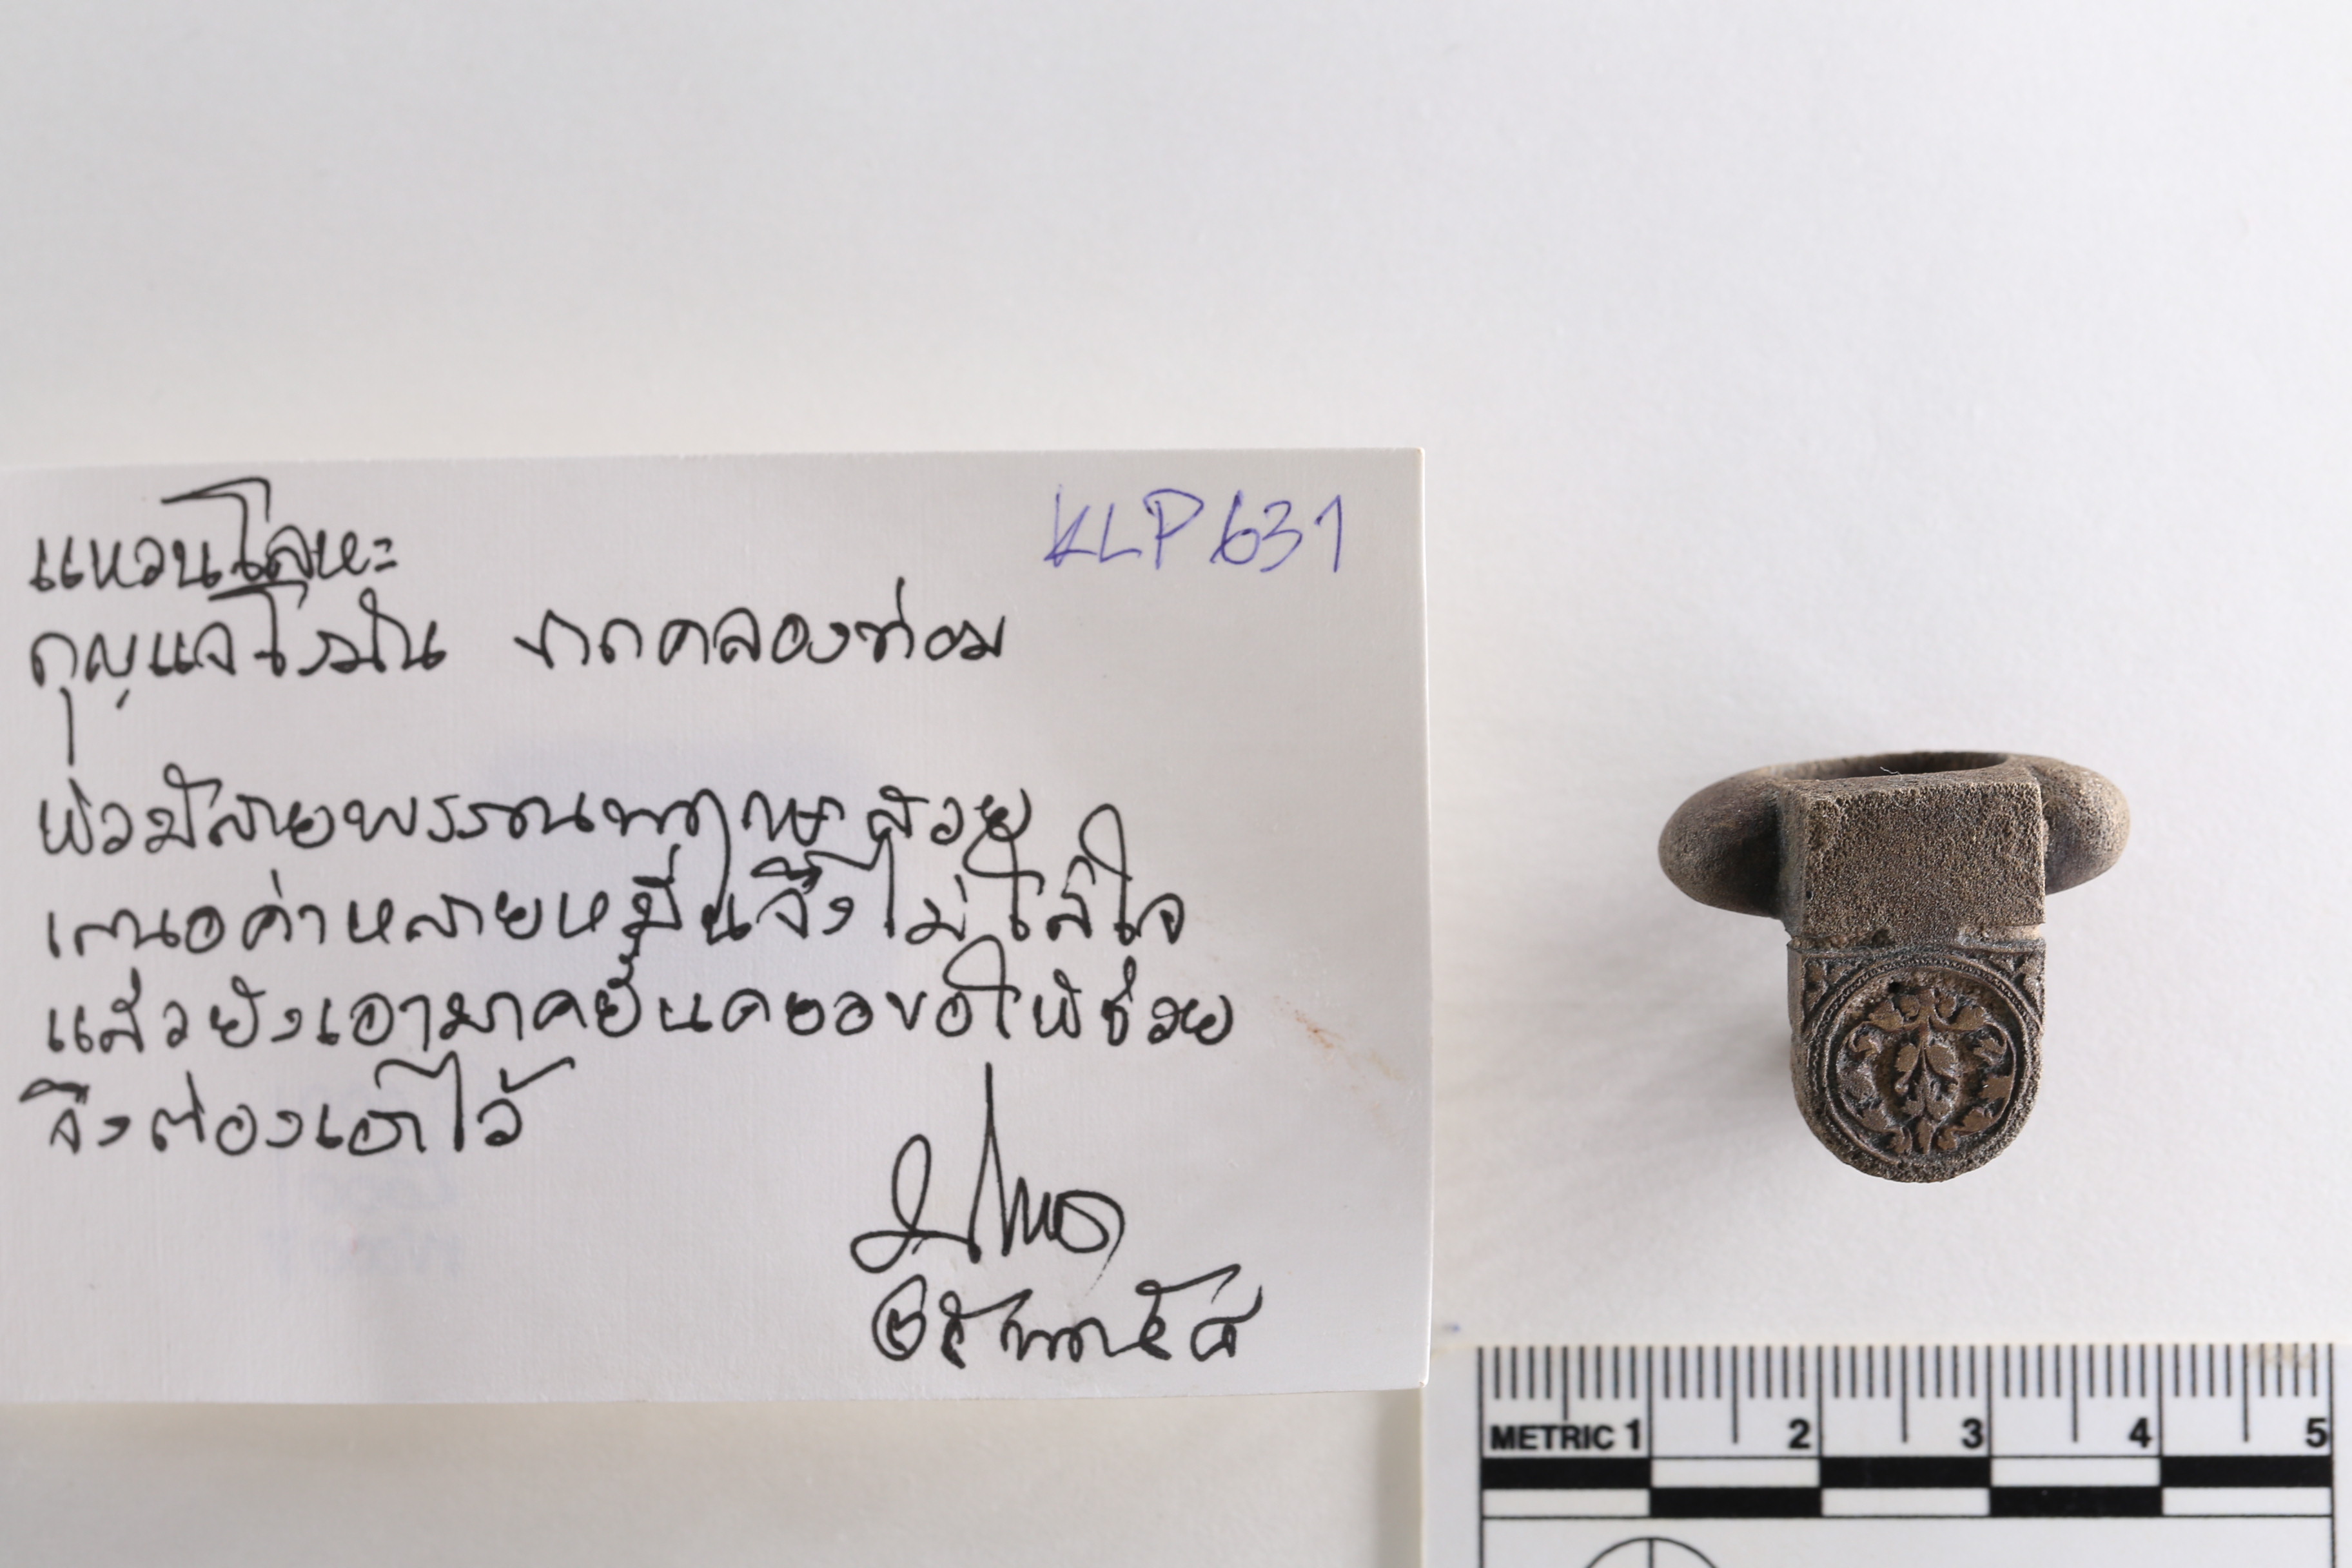 แหวนโลหะ
KLP 631
กุญแจโรมัน จากคลองท่อม
หัวมีลายพรรณพฤกษาสวย
เสนอค่าหลายหมื่นจึงไม่ใส่ใจ
แล้วยังเอามาคยั้นคยอขอให้ช่วย
จึงต้องเอาไว้
METRIC 1 2 3 4 5